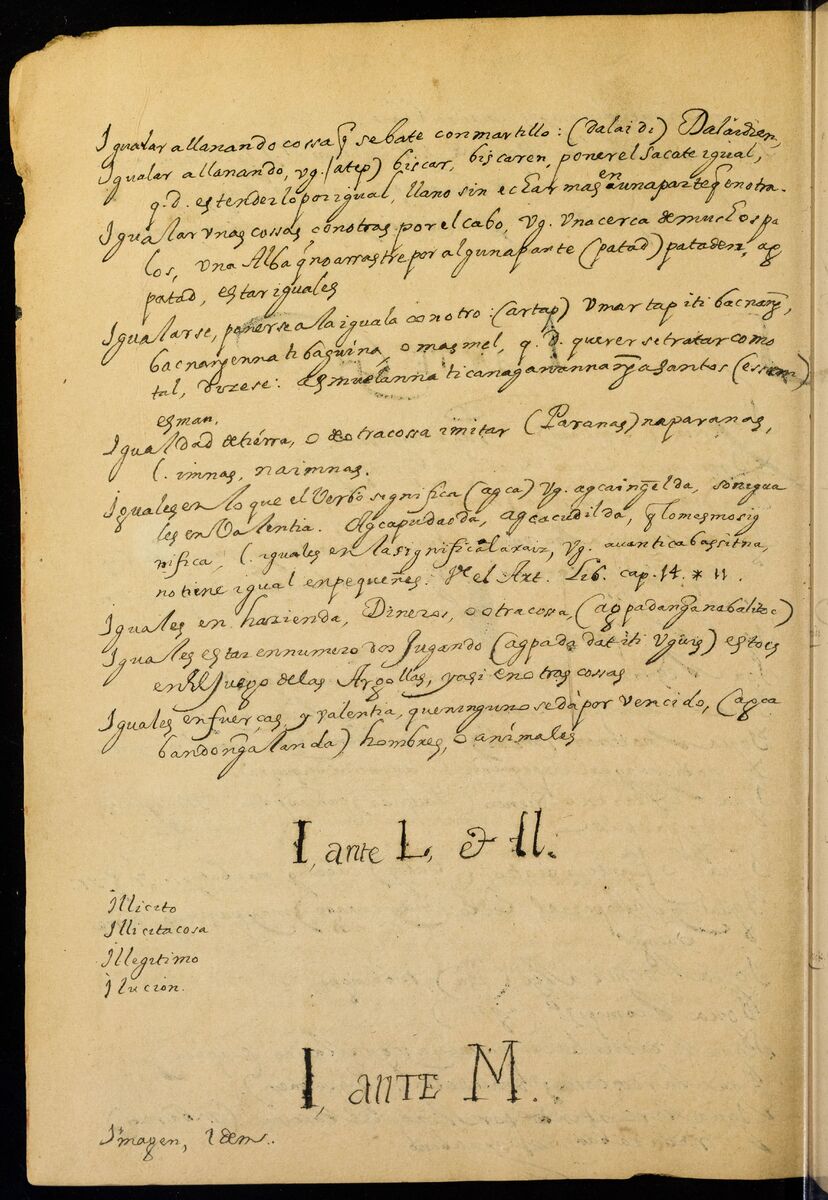 Igualar allanando cossa q̃ se bate con martillo: (dalaidi) Dalaidien,
Igualar allanando, vg. (atep) biscar, biscaren, poner el sacate igual,
q. d. estenderlo por igual, llano sin echar mas en una parte q̃ en otra.
Igualar vnas cossas con otras por el cabo, vg. vna cerca de muchos pa
los, vna Alba q̃ no arrastre por alguna parte (patad) pataden, ag
patad, estar iguales
Igualarse, ponerse a la iguala con otro: (artap) vmartap iti bacnang̃,
bacnang̃enna ti baguina, o masmel, q. d. querer se tratar como
tal, Dizese: santos
esman.
Igualdad de tierra, o de otra cossa imitar (Paranas) naparanas,
l. imnas, naimnas.
Iguales en lo que el Verbo significa (agca) vg. agcaing̃elda, son igua
les en Valentia. Agcapudaoda, agcacudilda, q̃ lo mesmo sig
nifica, l. iguales en la significa la raiz, vg. auanti cabassitna,
no tiene igual en pequeñes. Ve el Art. Lib. cap. 14. * 11.
Iguales en hazienda, Dineros, o otra cossa, (agpadang̃ana baliuoc)
Iguales estar en numero dos Jugando (agpada dat iti vg̃uis) esto es
en El Juego de las Argollas, y asi en otras cossas
Iguales en fuerças, y valentia, que ninguno se dà por vencido, (agca
bandong̃alanda) hombres, o animales
I, ante L, & ll.
Illicito
Illicita cosa
Illegitimo
Ilucion.
I, ANTE M.
Imagen, idem.